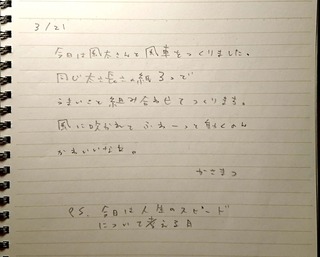 3/21
今日は風太さんと風車をつくりました。
同じ太さ長さの紐3つで
うまいこと組み合わせてつくります。
風に吹かれてふわーっと動くのん
かわいいなぁ。
かさまつ
PS. 今日は人生のスピード
について考える日